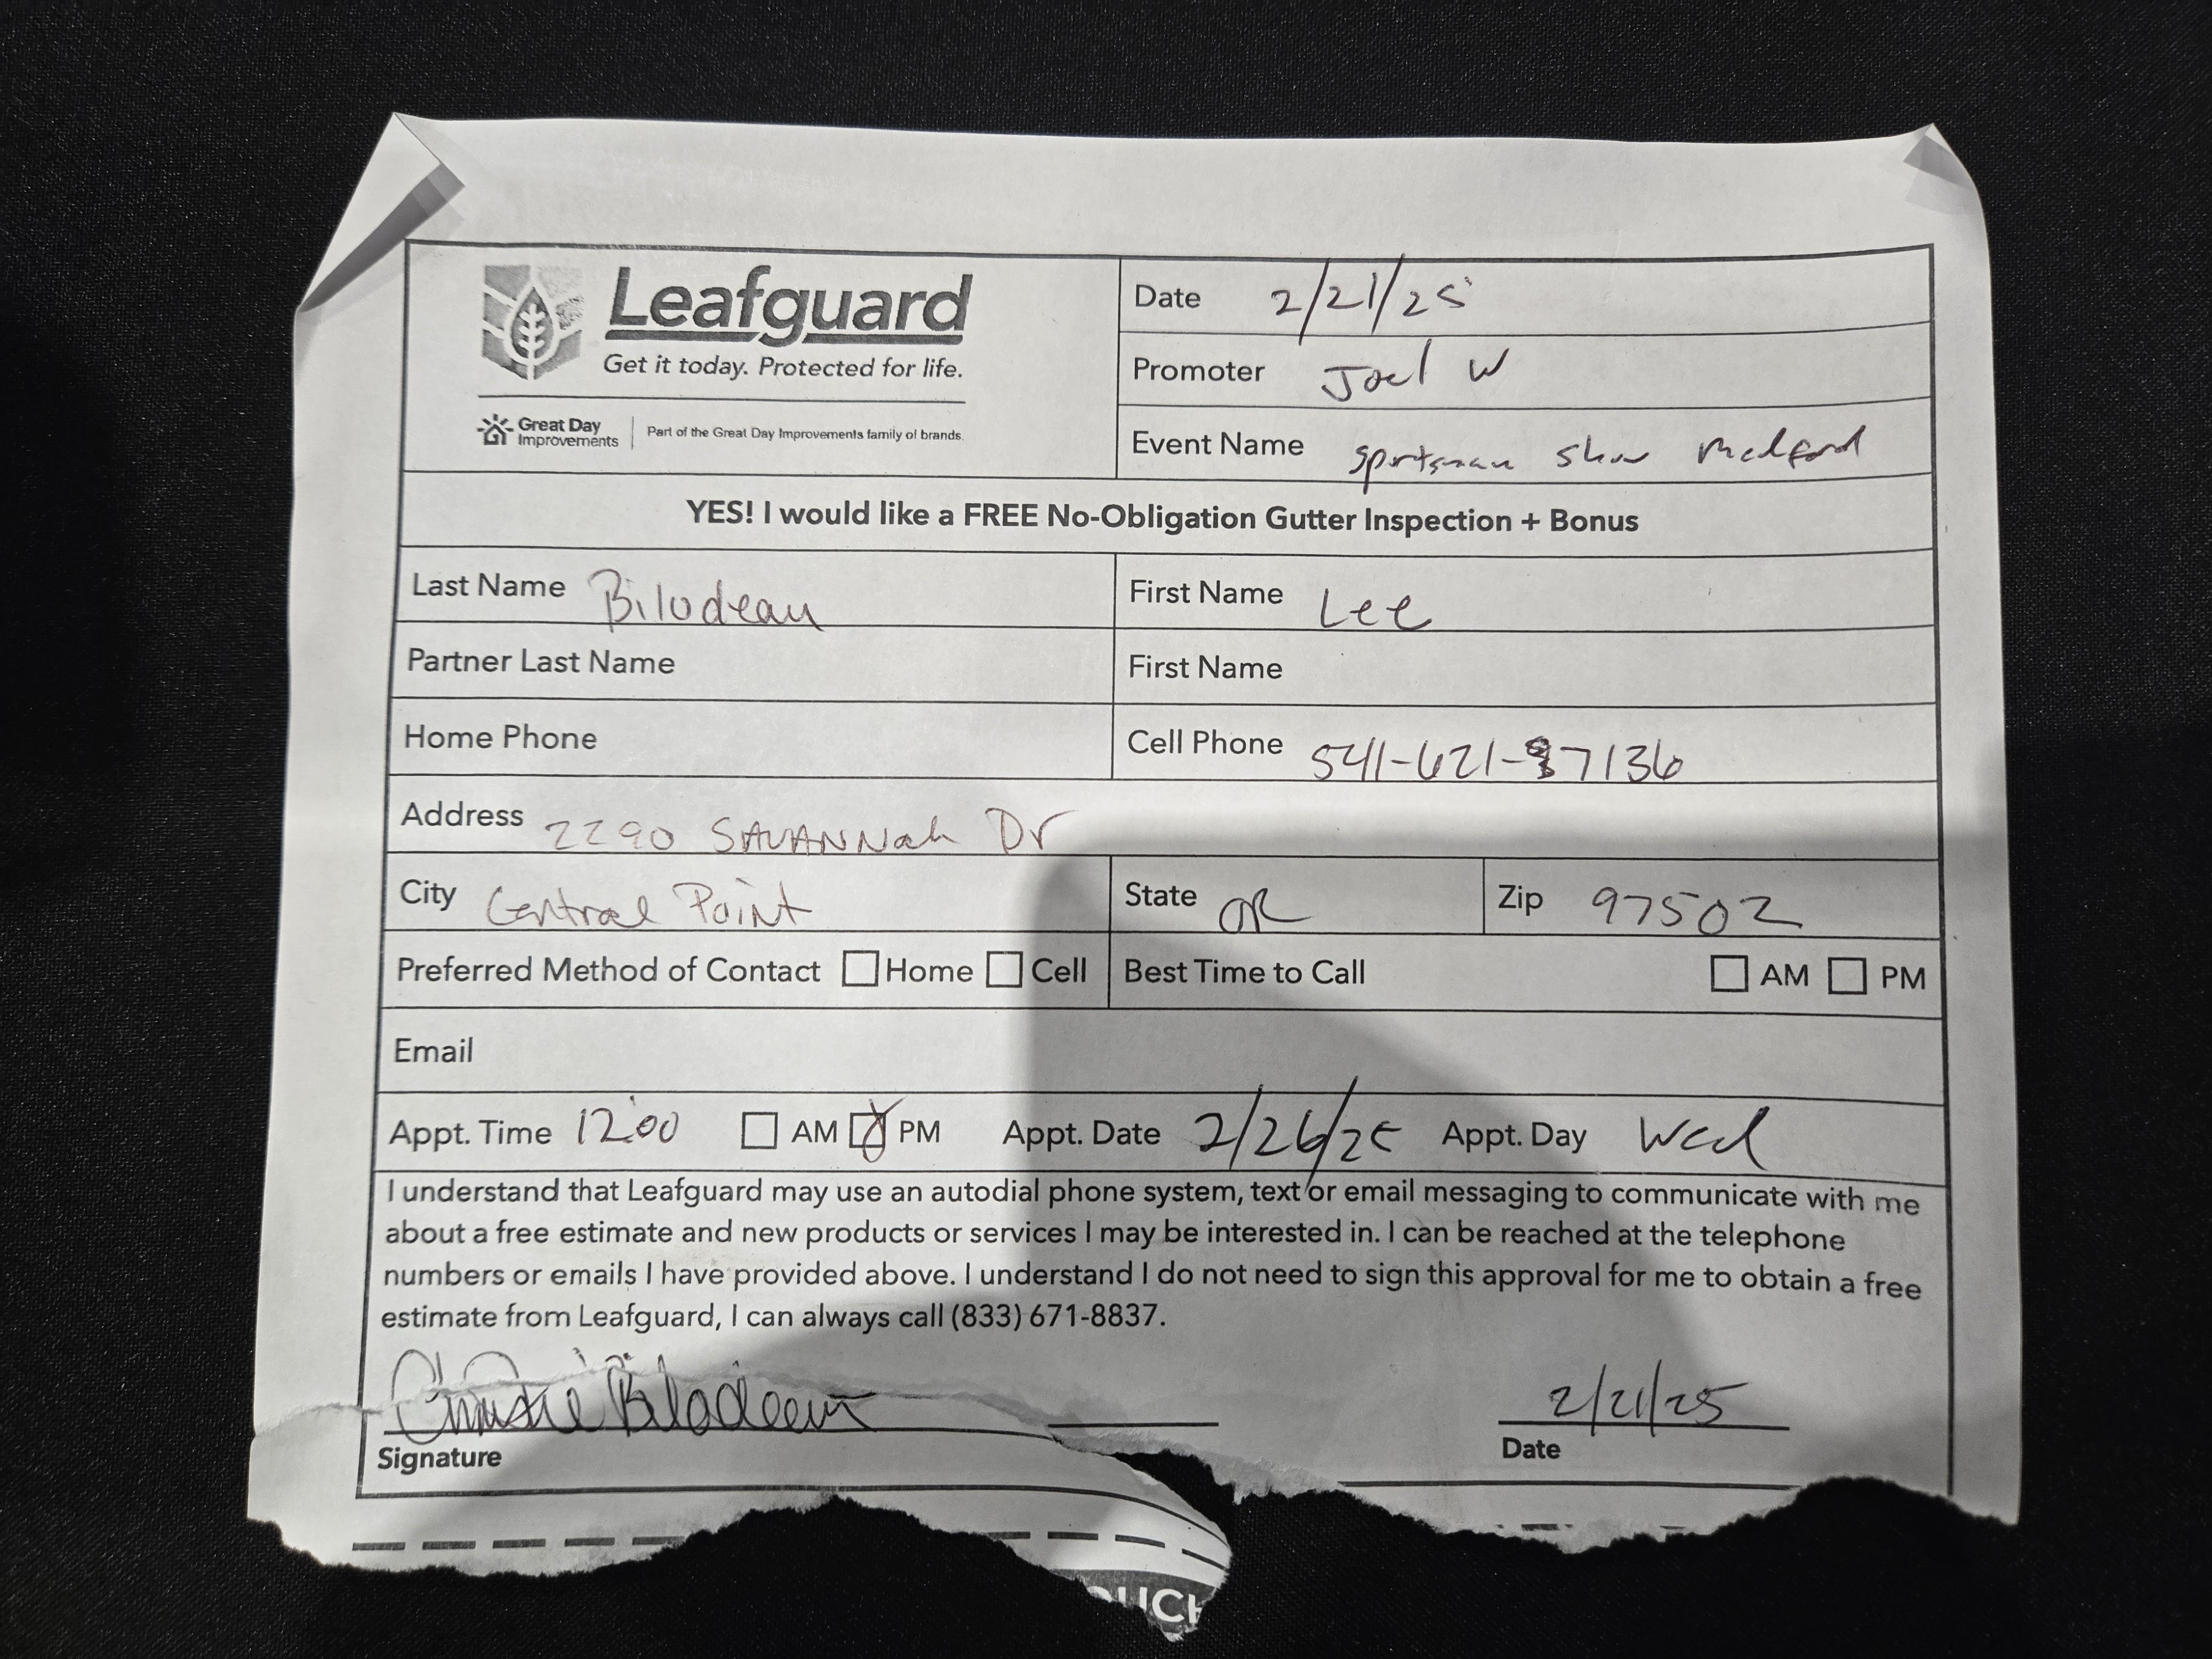 Leafguard
Get it today. Protected for life.
Great Day Improvements | Part of the Great Day Improvements family of brands.
Date 2/21/25
Promoter Joel W
Event Name sportsman show medford
YES! I would like a FREE No-Obligation Gutter Inspection + Bonus
Last Name Bilodeau First Name Lee
Partner Last Name First Name
Home Phone Cell Phone 541-621-7136
Address 2290 SAVANNah Dr
City Central Point State OR Zip 97502
Preferred Method of Contact Home Cell Best Time to Call AM PM
Email
Appt. Time 12:00 AM PM Appt. Date 2/26/25 Appt. Day Wed
I understand that Leafguard may use an autodial phone system, text or email messaging to communicate with me
about a free estimate and new products or services I may be interested in. I can be reached at the telephone
numbers or emails I have provided above. I understand I do not need to sign this approval for me to obtain a free
estimate from Leafguard, I can always call (833) 671-8837.
Bilodeau 2/21/25
Signature Date